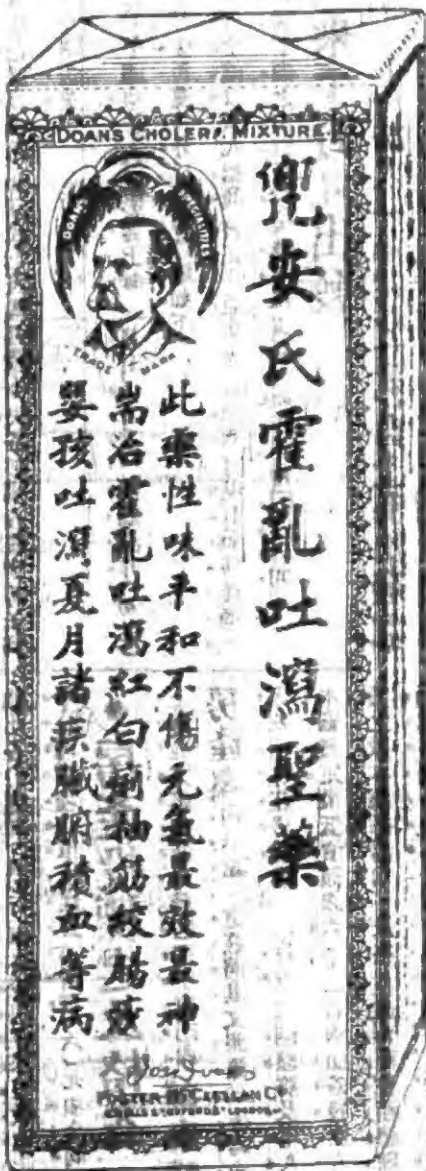 DOANS CHOLERA MIXTURE
DOANS SPECIALITIES
TRADE MARK
兜安氏霍亂吐瀉聖藥
此藥性味平和不傷元氣最效最神
耑治霍亂吐瀉紅白痢抽筋絞腸痧
嬰孩吐瀉夏月諸疾臟腑積血等病
FOSTER McCLELLAN Co